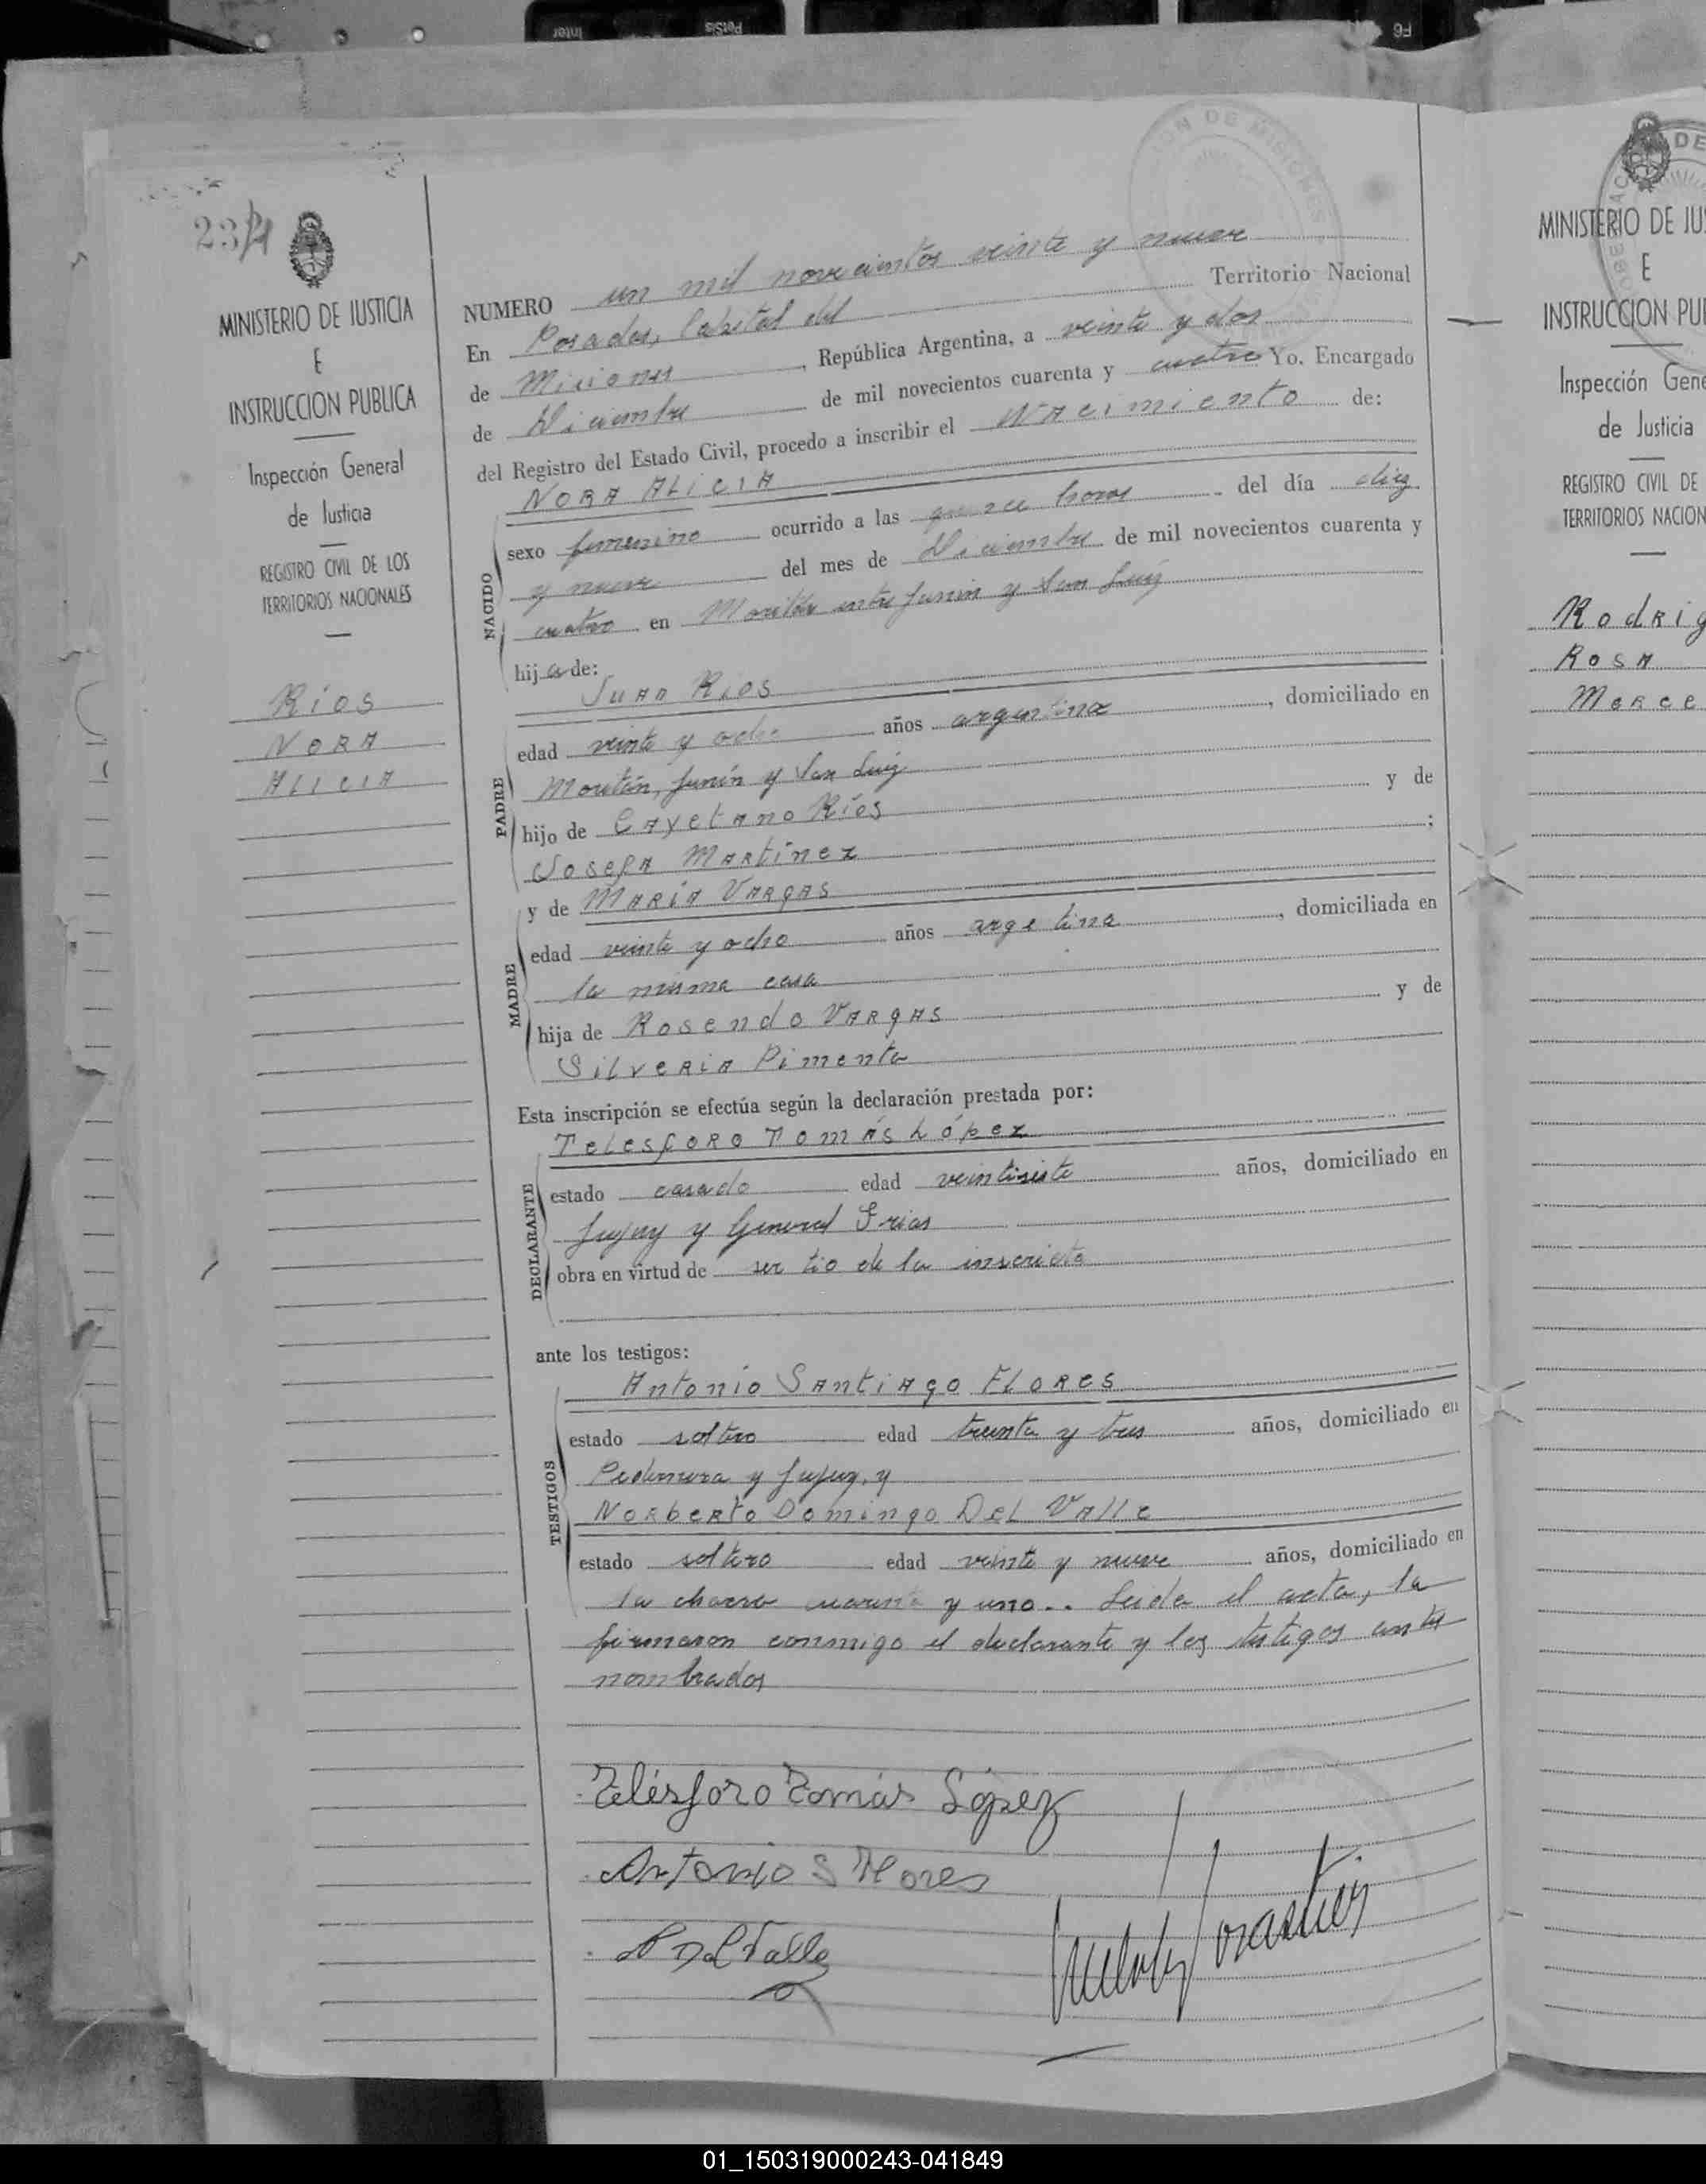 Inter
PetSis
F6
23
MINISTERIO DE JUSTICIA
E
INSTRUCCION PUBLICA
Inspección General
de Justicia
REGISTRO CIVIL DE LOS
TERRITORIOS NACIONALES
Ríos
NORA
ALICIA
NUMERO un mil novecientos veinte y nueve
En Posadas, Capital del Territorio Nacional
de Misiones, República Argentina, a veinte y dos
de Diciembre de mil novecientos cuarenta y cuatro Yo. Encargado
del Registro del Estado Civil, procedo a inscribir el NAcimiento de:
NACIDO
NORA ALiCIA
sexo femenino ocurrido a las quince horas del día diez
y nueve del mes de Diciembre de mil novecientos cuarenta y
cuatro en Moritán entre Junín y San Luis
hija de:
PADRE
JUAn Ríos
edad veinte y ocho años argentina, domiciliado en
Moritán, Junín y San Luis
hijo de CAyetAno Ríos y de
JosefA MARtínez;
MADRE
y de MARíA VARgAs
edad veinte y ocho años arge tina, domiciliada en
la misma casa
hija de Rosendo VARgAS y de
SilveRiA Pimenta
Esta inscripción se efectúa según la declaración prestada por:
DECLARANTE
TelesfoRo TomÁs López
estado casado edad veintisiete años, domiciliado en
Jujuy y General Frias
obra en virtud de ser tio de la inscripta
ante los testigos:
TESTIGOS
Antonio SAntiAgo FLoRes
estado soltero edad treinta y tres años, domiciliado en
Pedernera y Jujuy, y
NoRbeRto Domingo Del VAlle
estado soltero edad veinte y nueve años, domiciliado en
la chacra cuarenta y uno.. Leida el acta, la
firmaron conmigo el declarante y los testigos ante
nombrados
Telésforo Tomás López
Antonio S Flores
N Del Valle
DE MISIONES
DE
MINISTERIO DE JUS
E
INSTRUCCION PUB
Inspección Gene
de Justicia
REGISTRO CIVIL DE
TERRITORIOS NACION
RodRig
RosA
MeRce
01_150319000243-041849